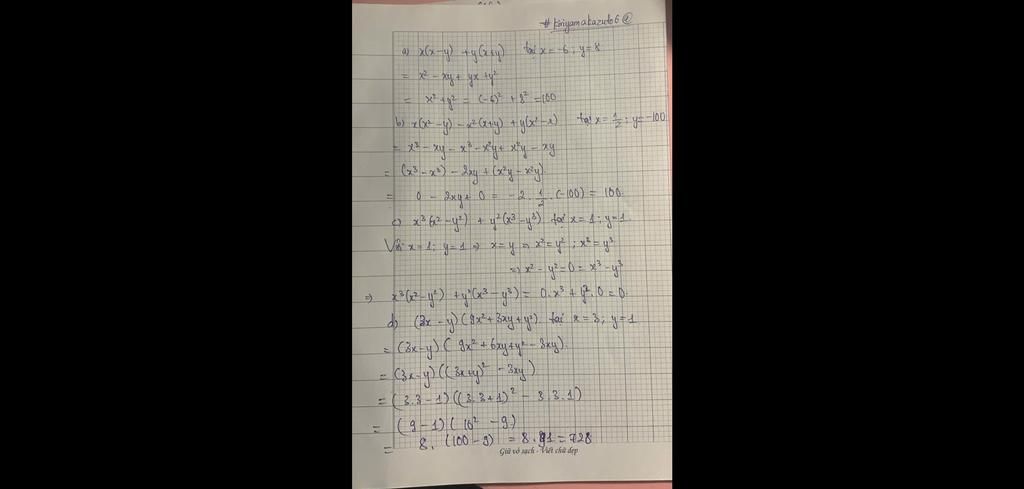 # kiriyamakazuto6
a) x(x-y) + y(x+y) tại x = -6; y = 8
= x² - xy + yx + y²
= x² + y² = (-6)² + 8² = 100
b) x(x² - y) - x²(x+y) + y(x² - x) tại x = 1/2; y = -100
= x³ - xy - x³ - x²y + x²y - xy
= (x³ - x³) - 2xy + (x²y - x²y).
= 0 - 2xy + 0 = -2. 1/2 . (-100) = 100.
c) x³(x² - y²) + y²(x³ - y³) tại x = 1; y = 1.
Với x = 1; y = 1 => x = y => x² = y²; x³ = y³
=> x² - y² = 0 = x³ - y³
=> x³(x² - y²) + y²(x³ - y³) = 0.x³ + y².0 = 0.
d) (3x - y)(9x² + 3xy + y²) tại x = 3; y = 1
= (3x - y)(9x² + 6xy + y² - 3xy).
= (3x - y)((3x+y)² - 3xy)
= (3.3 - 1)((3.3+1)² - 3.3.1)
= (9 - 1)(10² - 9)
= 8. (100 - 9) = 8.91 = 728
Giữ vở sạch - Viết chữ đẹp